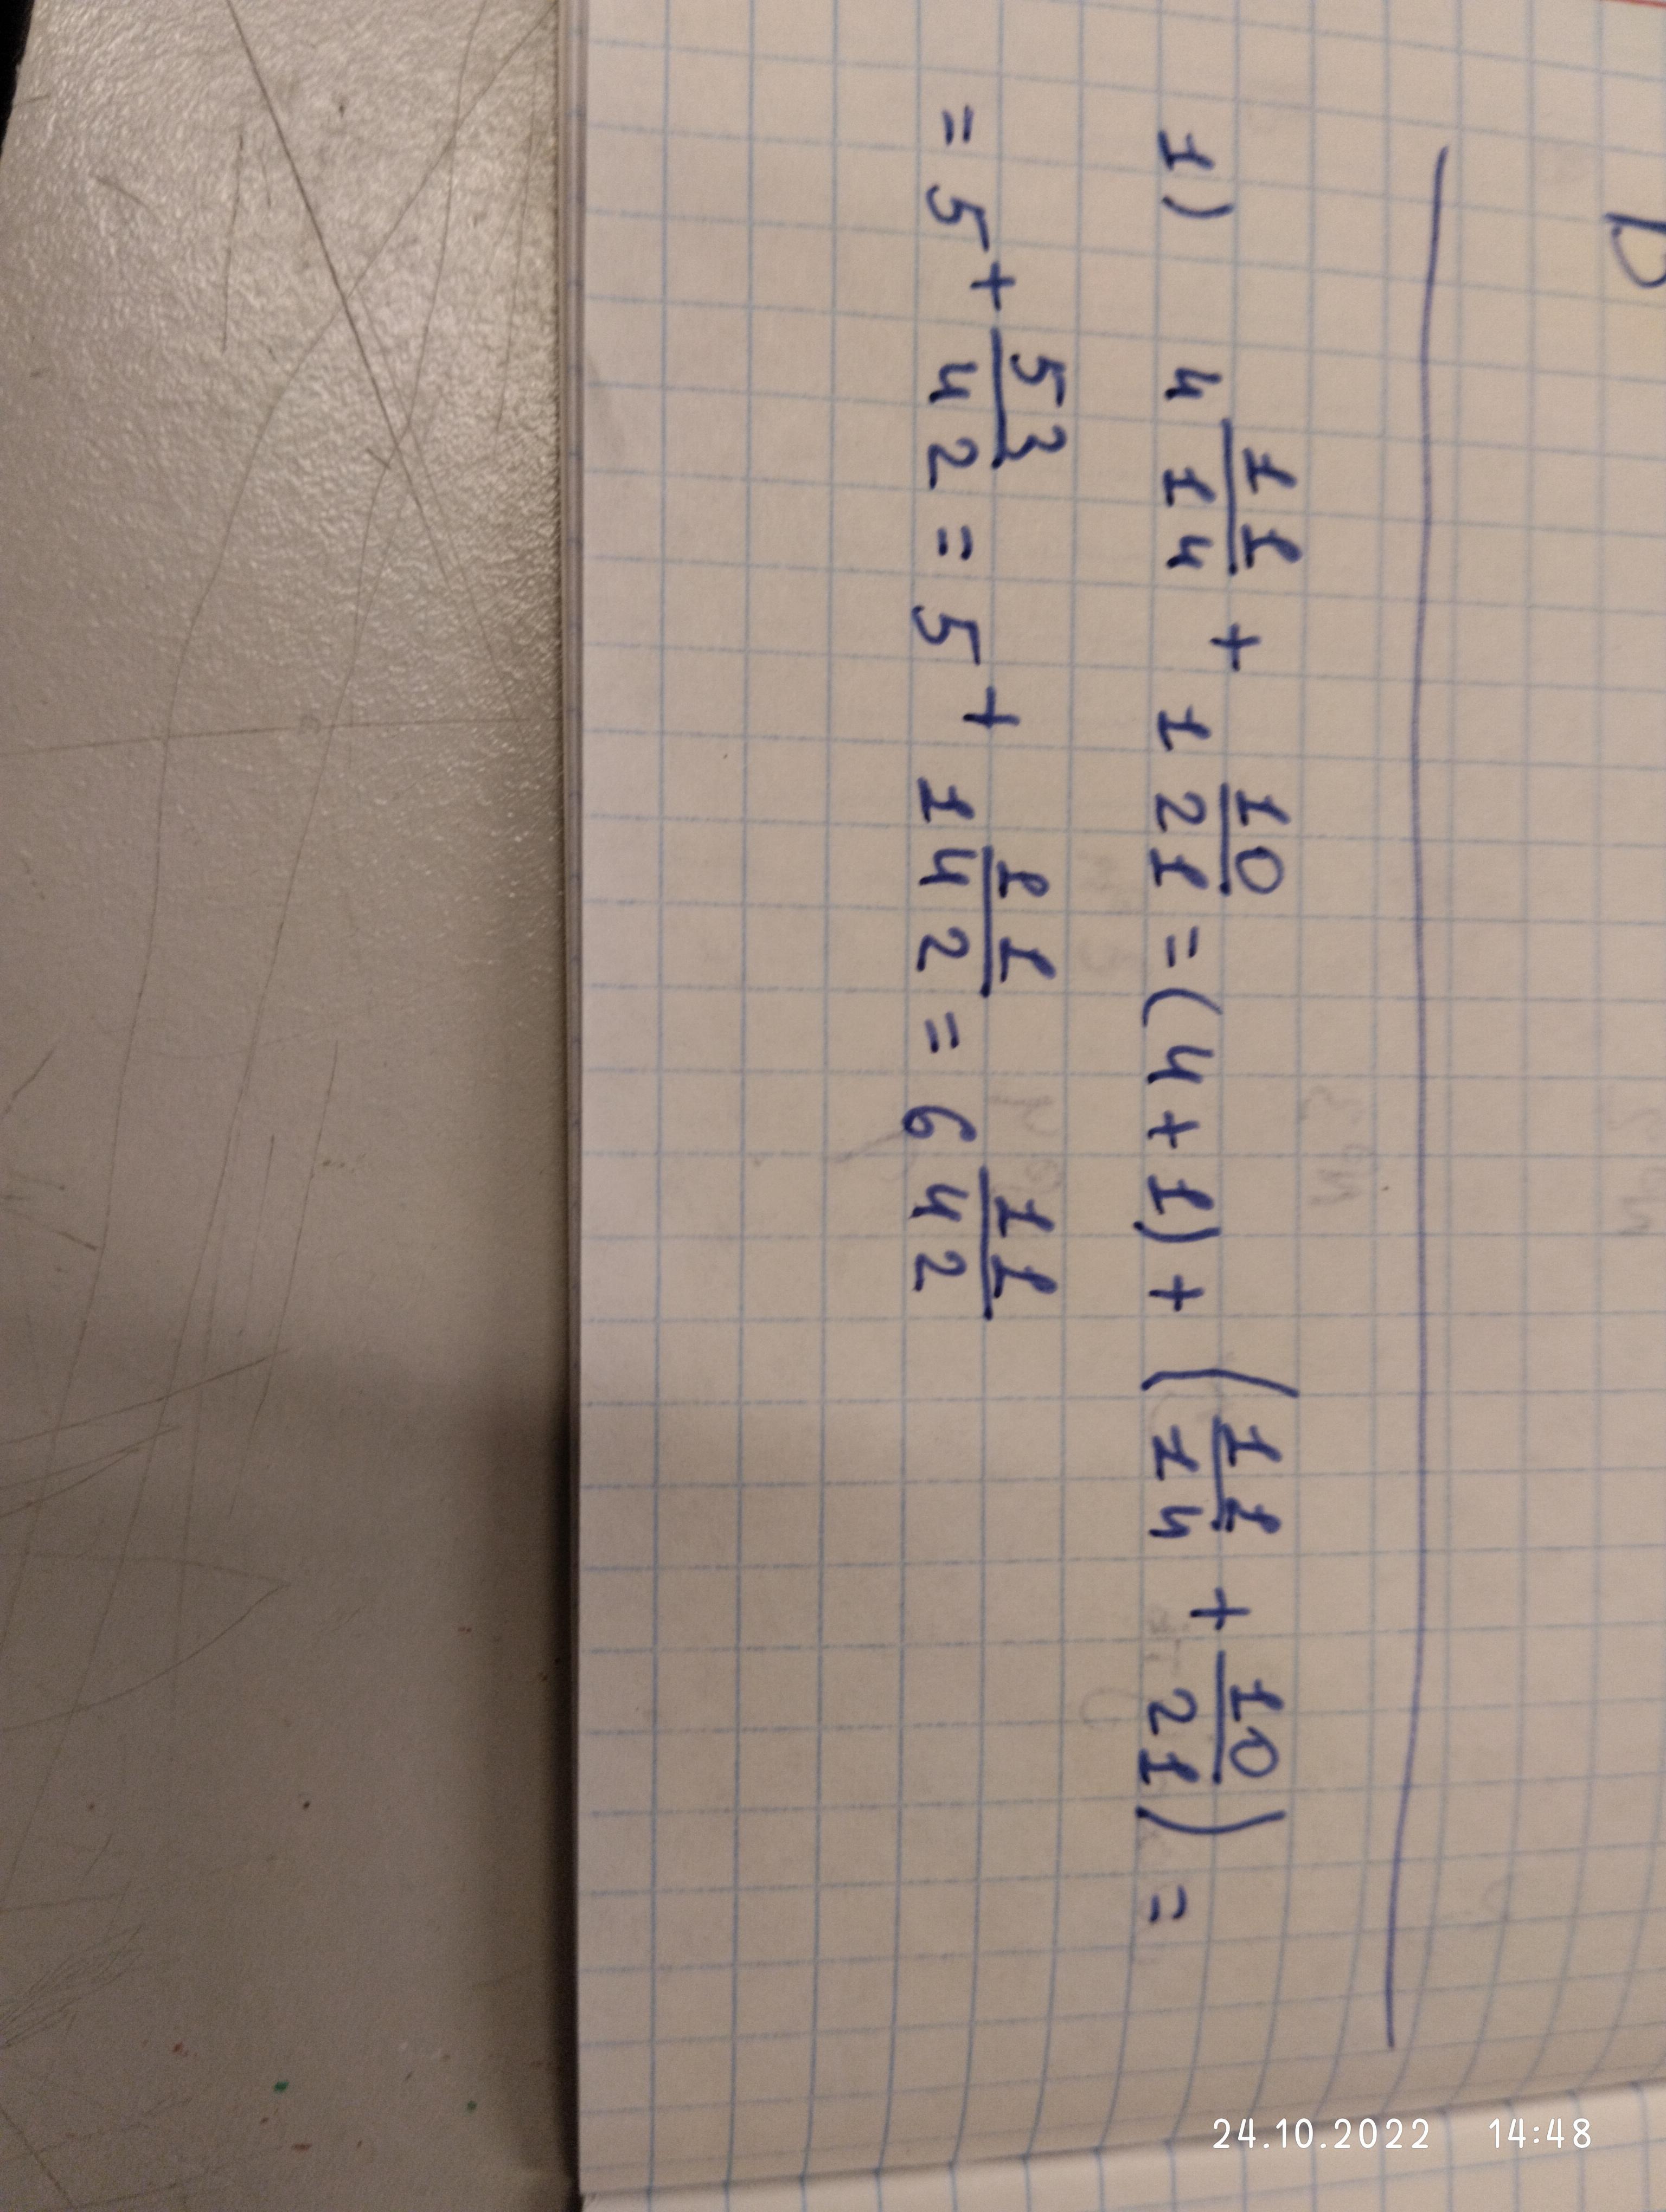 1) 4 11/14 + 1 10/21 = (4 + 1) + (11/14 + 10/21) =
= 5 + 53/42 = 5 + 1 11/42 = 6 11/42
24.10.2022 14:48